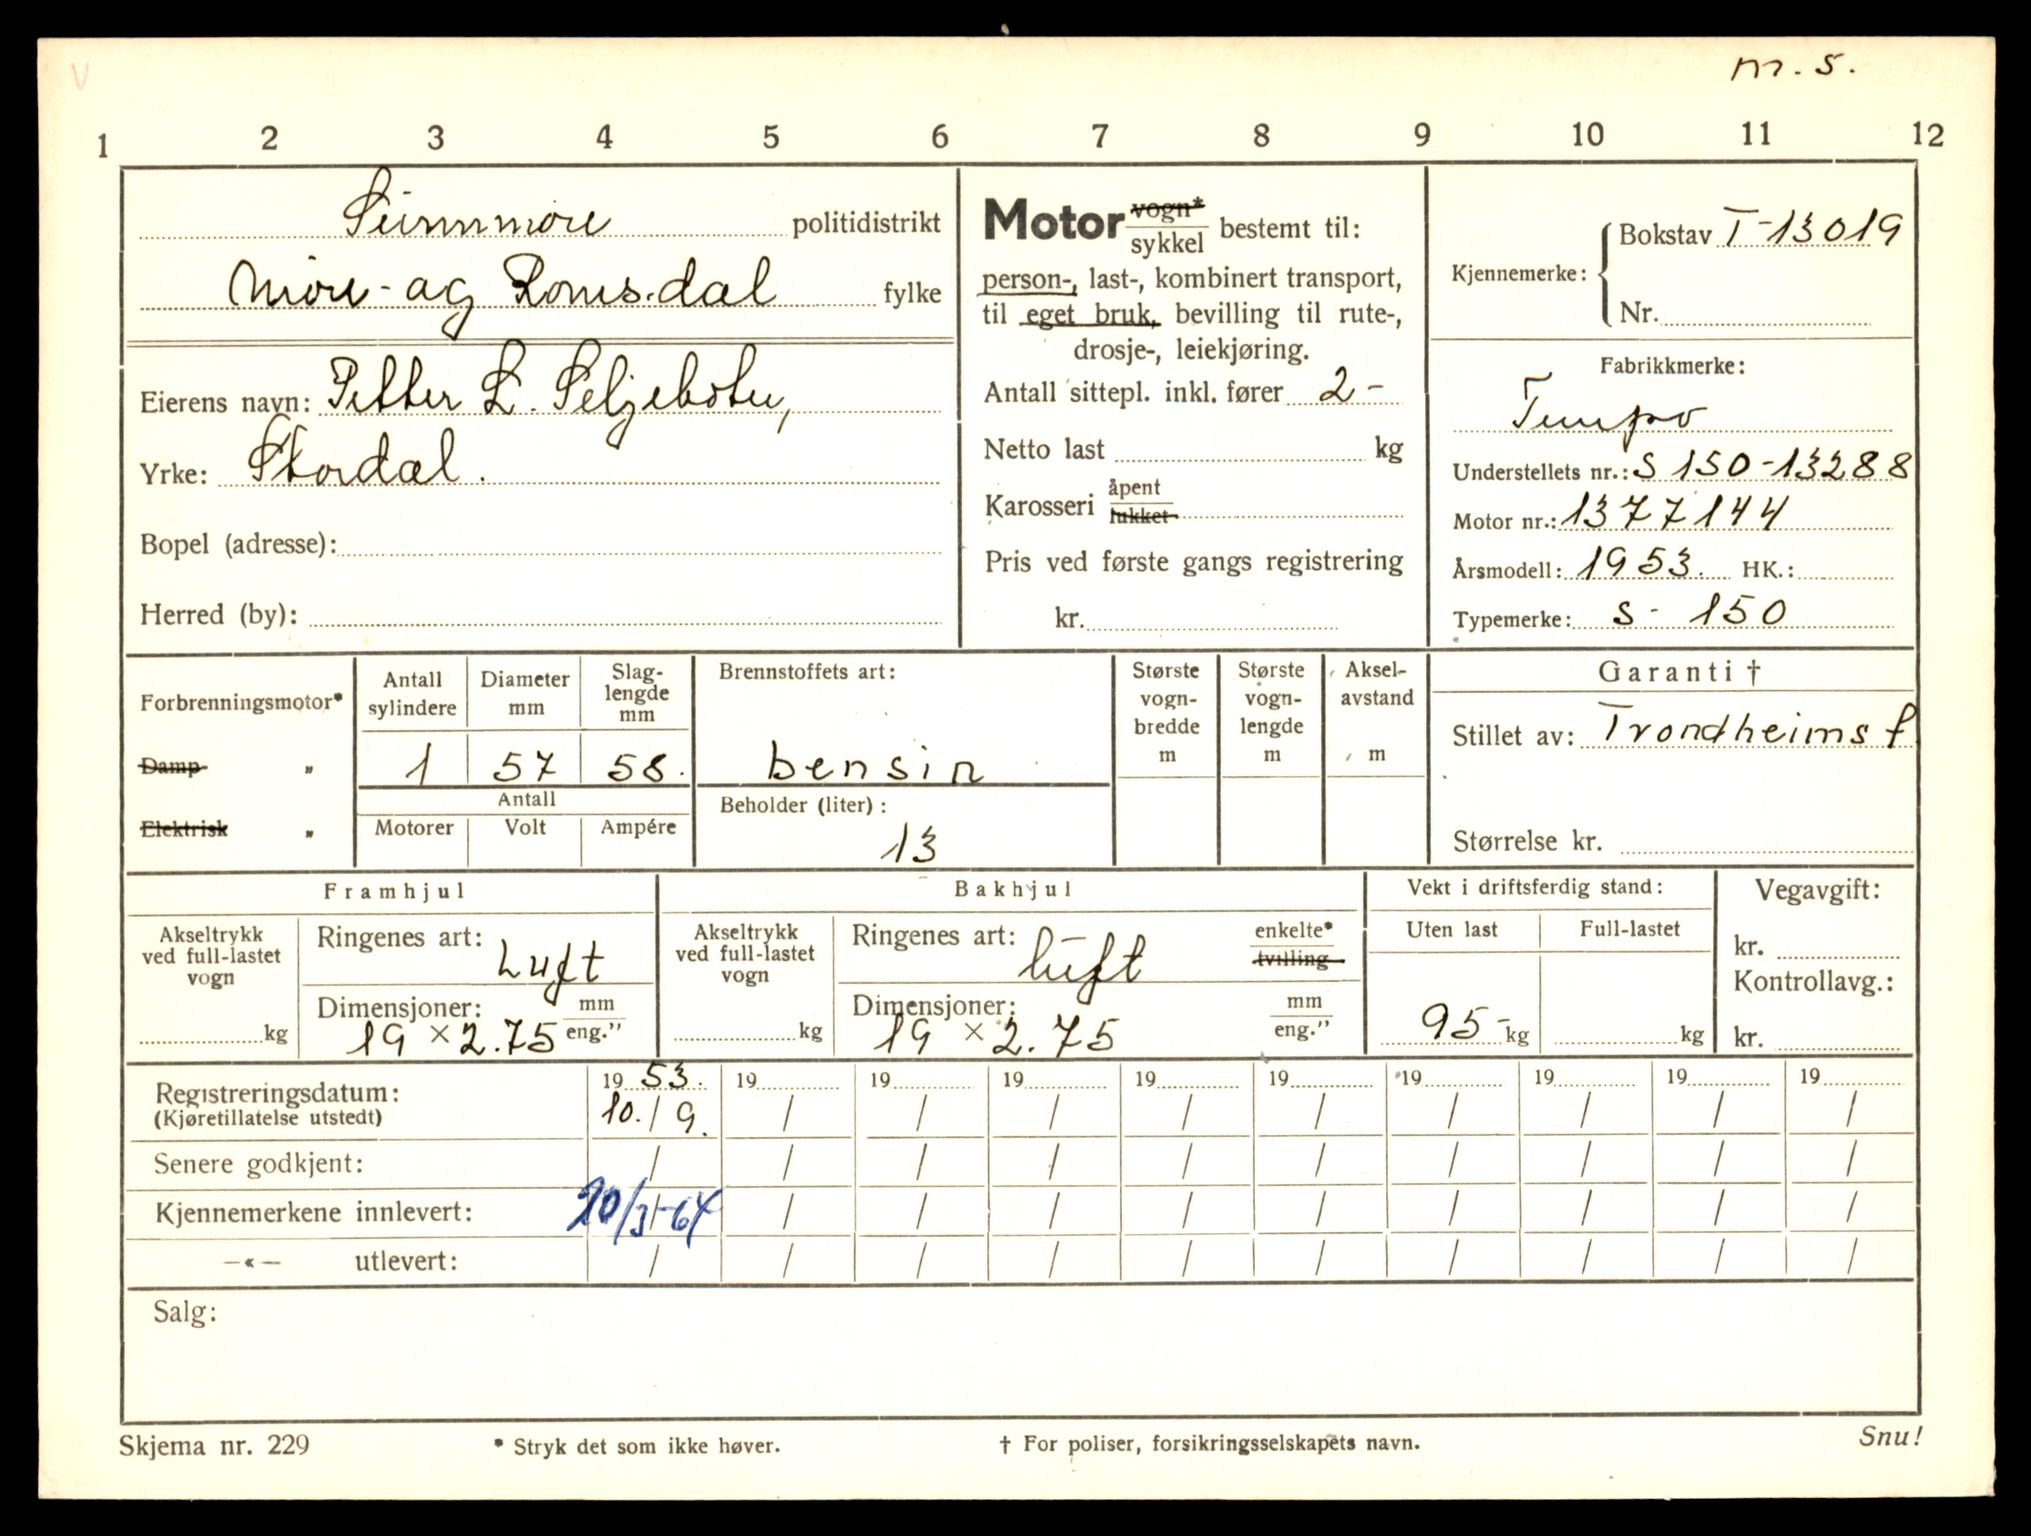 m.s.
1 2 3 4 5 6 7 8 9 10 11 12
Sunnmøre politidistrikt
Møre- og Romsdal fylke
Eierens navn: Petter L. Seljebotn,
Yrke: Stordal.
Bopel (adresse):
Herred (by):
Motor vogn* / sykkel bestemt til:
person-, last-, kombinert transport,
til eget bruk, bevilling til rute-,
drosje-, leiekjøring.
Antall sittepl. inkl. fører 2-
Netto last kg
Karosseri åpent / lukket
Pris ved første gangs registrering
kr.
Kjennemerke: Bokstav T-13019
Nr.
Fabrikkmerke:
Tempo
Understellets nr.: S 150-13288
Motor nr.: 1377144
Årsmodell: 1953. HK.:
Typemerke: S- 150
Forbrenningsmotor*
Damp „
Elektrisk „
Antall sylindere Diameter mm Slag-lengde mm
1 57 58.
Antall
Motorer Volt Ampére
Brennstoffets art:
bensin
Beholder (liter):
13
Største vogn-bredde m Største vogn-lengde m Aksel-avstand m
Garanti †
Stillet av: Trondheims f
Størrelse kr.
Framhjul
Akseltrykk ved full-lastet vogn
kg
Ringenes art: Luft
Dimensjoner: mm / eng.”
19 × 2.75
Bakhjul
Akseltrykk ved full-lastet vogn
kg
Ringenes art: luft enkelte* / tvilling
Dimensjoner: mm / eng.”
19 × 2.75
Vekt i driftsferdig stand:
Uten last Full-lastet
95- kg kg
Vegavgift:
kr.
Kontrollavg.:
kr.
Registreringsdatum: 19 53. 19 19 19 19 19 19 19 19 19
(Kjøretillatelse utstedt) 10. / 9. / / / / / / / / /
Senere godkjent: / / / / / / / / / /
Kjennemerkene innlevert: 20/3-64 / / / / / / / / /
—«— utlevert: / / / / / / / / / /
Salg:
Skjema nr. 229 * Stryk det som ikke høver. † For poliser, forsikringsselskapets navn. Snu!